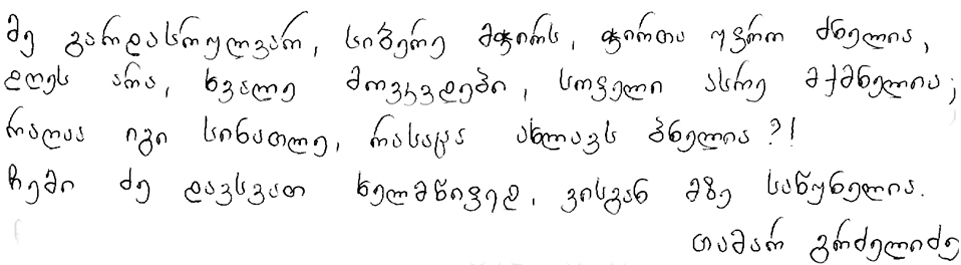 მე გარდასრულვარ, სიბერე მჭირს, ჭირთა უფრო ძნელია,
დღეს არა, ხვალე მოვკვდები, სოფელი ასრე მქმნელია;
რაღაა იგი სინათლე, რასაცა ახლავს ბნელია?!
ჩემი ძე დავსვათ ხელმწიფედ, ვისგან მზე საწუნელია.
თამარ გრძელიძე